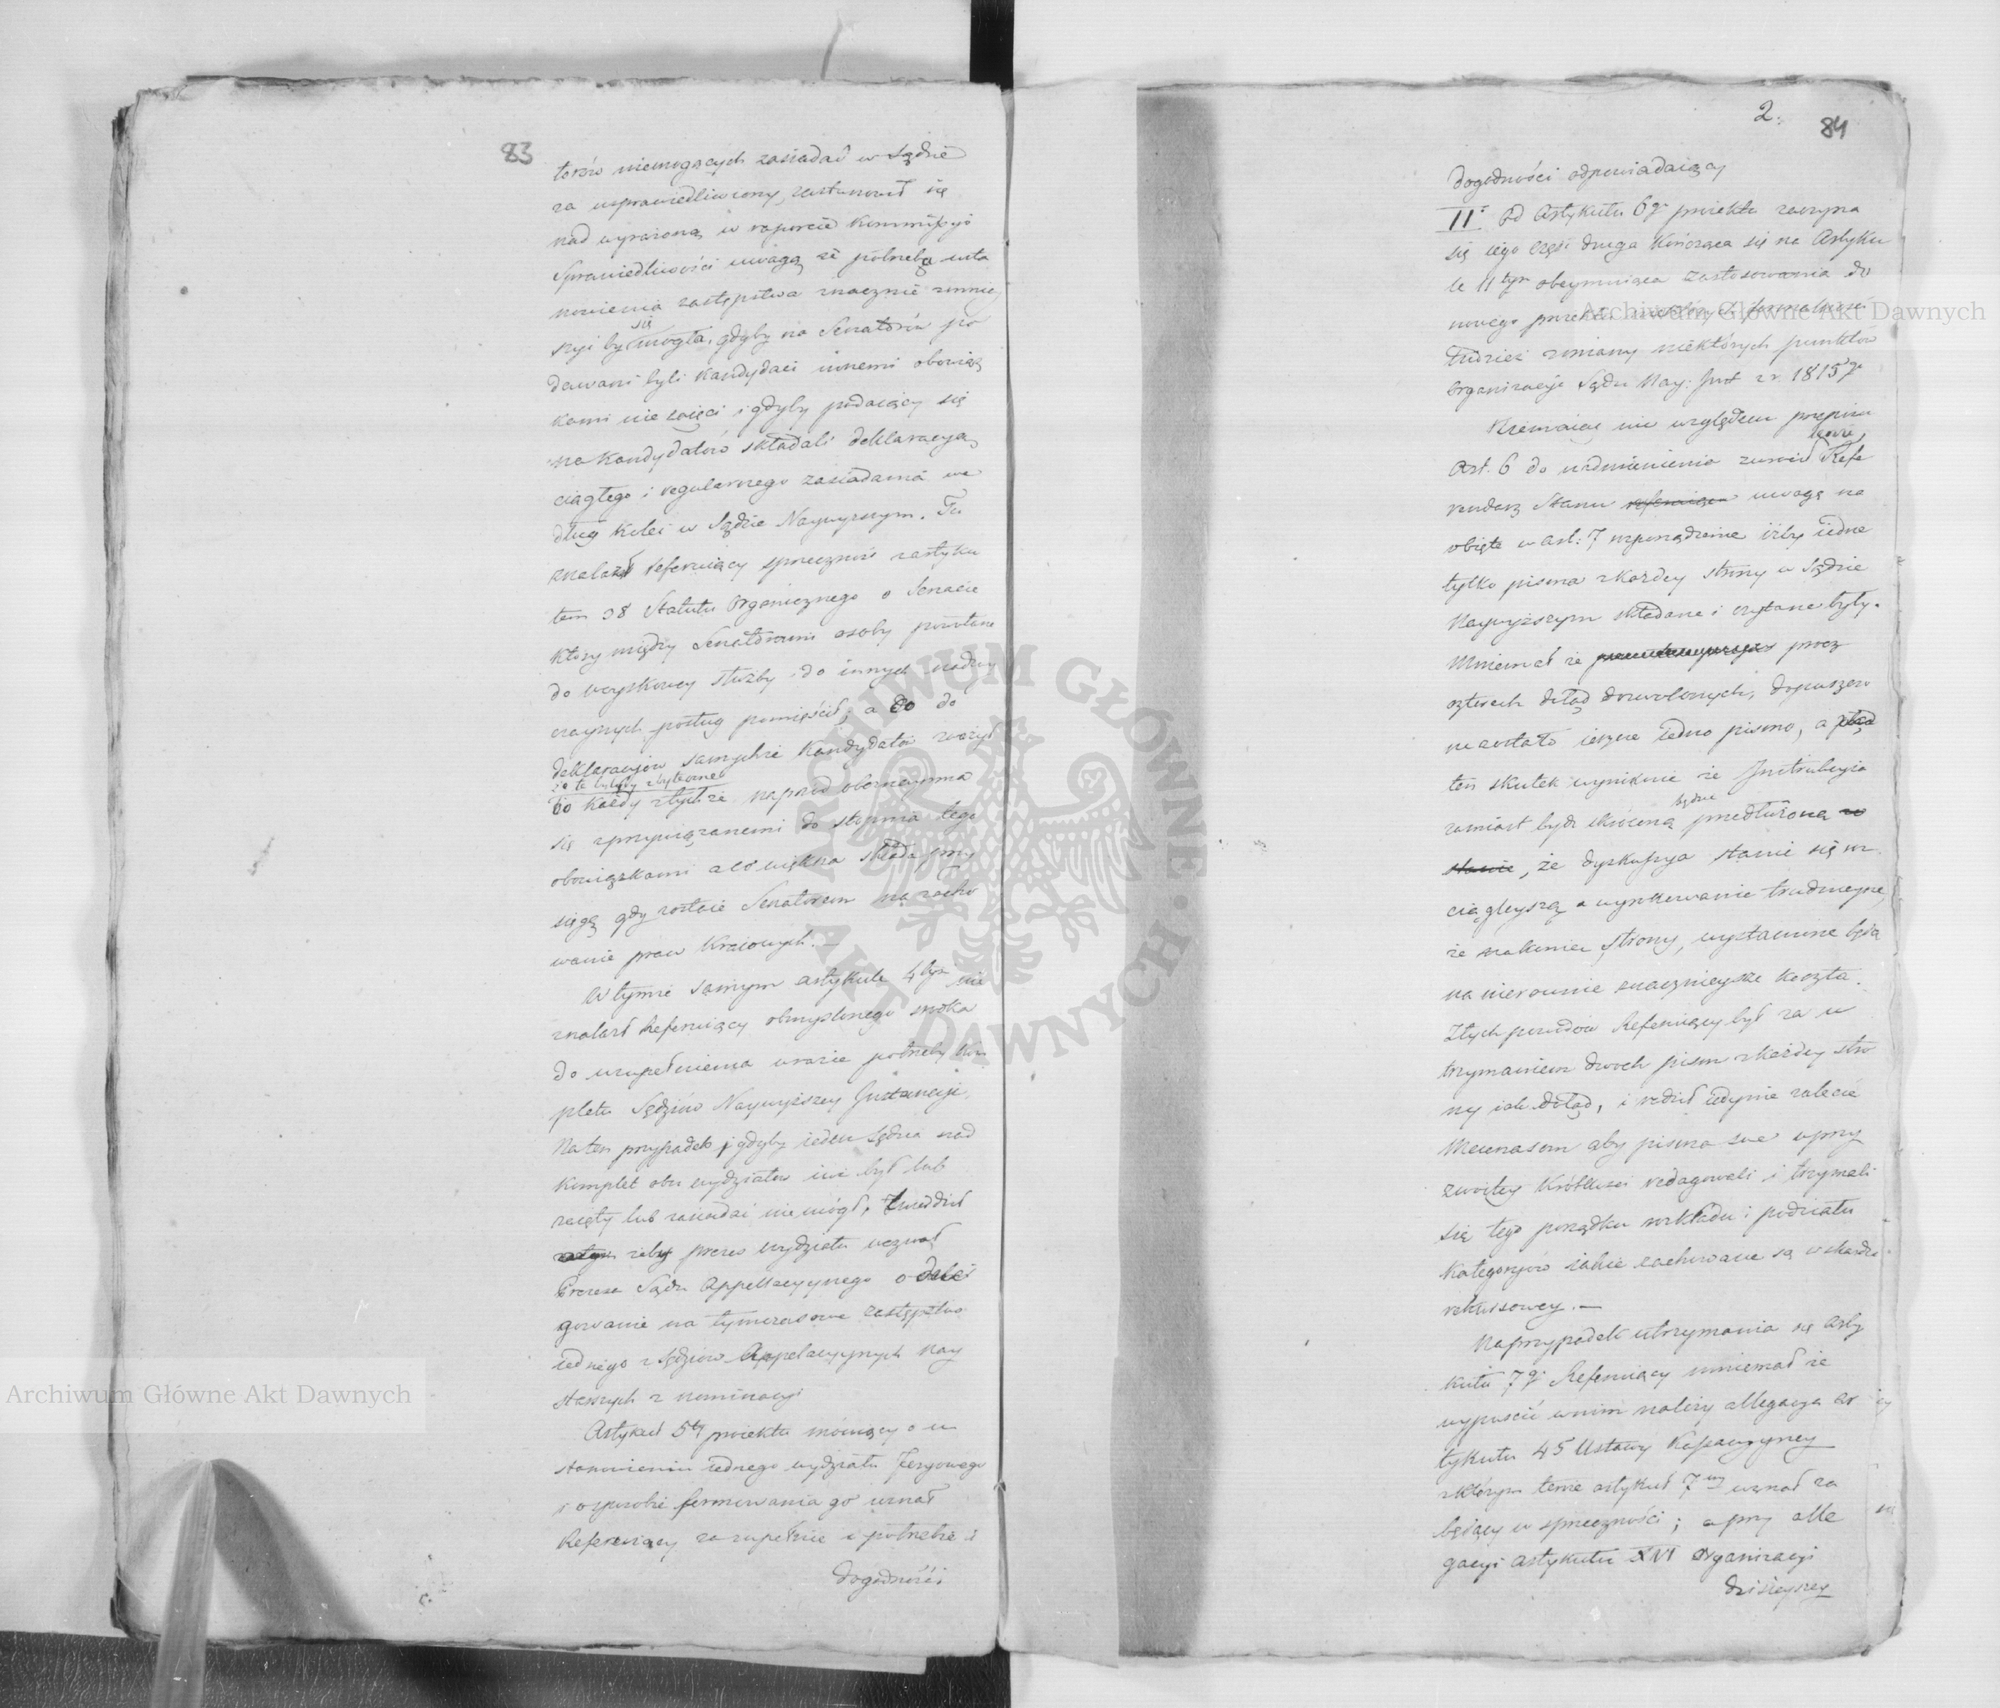 83
torów niemogących zasiadać w Sądzie
za usprawiedliwiony, zastanowił się
nad wyrażoną w raporcie Kommissyi
Sprawiedliwości uwagą że potrzeba usta
nowienia zastępstwa znacznie zmniey
szyć by się mogła, gdyby na Senatorów po
dawani byli Kandydaci innemi obowiąz
kami nie zaięci i gdyby podaiący się
na Kandydatów składali deklaracyą
ciągłego i regularnego zasiadania we
dług kolei w Sądzie Naywyższym. Tu
znalazł referuiący sprzeczność z artyku
łem 38 Statutu Organicznego o Senacie
który między Senatorami osoby powołane
do woyskowey służby i do innych nadzwy
czaynych posług pomieścił; a co do
deklaracyiów samychże Kandydatów zważył
że te byłyby zbyteczne
bo każdy z tychże naprzód obeznayma
się z przywiązanemi do stopnia tego
obowiązkami a co większa składa przy
sięgę gdy zostaie Senatorem na zacho
wanie praw Kraiowych. —
W tymże samym artykule 4tym nie
znalazł Referuiący obmyślonego środka
do uzupełnienia w razie potrzeby kom
pletu Sędziów Naywyższey Instancyi.
Na ten przypadek i gdyby ieden Sędzia nad
komplet obu wydziałów nie był lub
zaięty lub zasiadać nie mógł, twierdził
żeby prezes wydziału wezwał
Prezesa Sądu Appellacyinego o dele
gowanie na tymczasowe zastępstwo
iednego z Sędziów Appelacyinych nay
starszych z nominacyi
Artykuł 5ty proiektu mówiący o u
stanowieniu iednego wydziału feryowego
i o sposobie formowania go uznał
Referuiący za zupełnie i potrzebie i
dogodności
2.
84
dogodności odpowiadaiący
II° Od Artykułu 6go proiektu zaczyna
się iego część druga kończąca się na Artyku
le 11tym obeymuiąca zastosowania do
nowego porządku niektórych formalności
tudzież zmiany niektórych punktów
organizacyi Sądu Nay: Inst z r. 1815go
Niemaiąc nic względem przepisu
Art. 6 do nadmienienia zwrócił Refe
rendarz Stanu uwagę na
obięte w art: 7 rozporządzenie iżby iedne
tylko pisma z każdey strony w Sądzie
Naywyższym składane i czytane były.
Mniemał że prócz
czterech dotąd dozwolonych, dopuszczo
ne zostało ieszcze iedno pismo, a ztąd
ten skutek wyniknie że Instrukcyia
zamiast bydź skróconą będzie przedłużoną
, że dyskussya stanie się roz
ciągleyszą a wyrokowanie trudnieysze,
że nakoniec strony, wystawione będą
na nierównie znacznieysze koszta.
Z tych powodów Referuiący był za u
trzymaniem dwóch pism z każdey stro
ny iak dotąd, i radził iedynie zalecić
Mecenasom aby pisma swe w przy
zwoitey krótkości redagowali i trzymali
się tego porządku rozkładu i podziału
kategoryiów iakie zachowane są w skardze
rekursowey. —
Na przypadek utrzymania się Arty
kułu 7go Referuiący mniemał że
wypuścić w nim należy allegacyą ar
tykułu 45 Ustawy Kassacyiney
z którym tenże artykuł 7my uznał za
będący w sprzeczności; a przy alle
gacyi artykułu XVI Organizacyi
dzisieyszey
ARCHIWUM GŁÓWNE AKT DAWNYCH
Archiwum Główne Akt Dawnych
Archiwum Główne Akt Dawnych